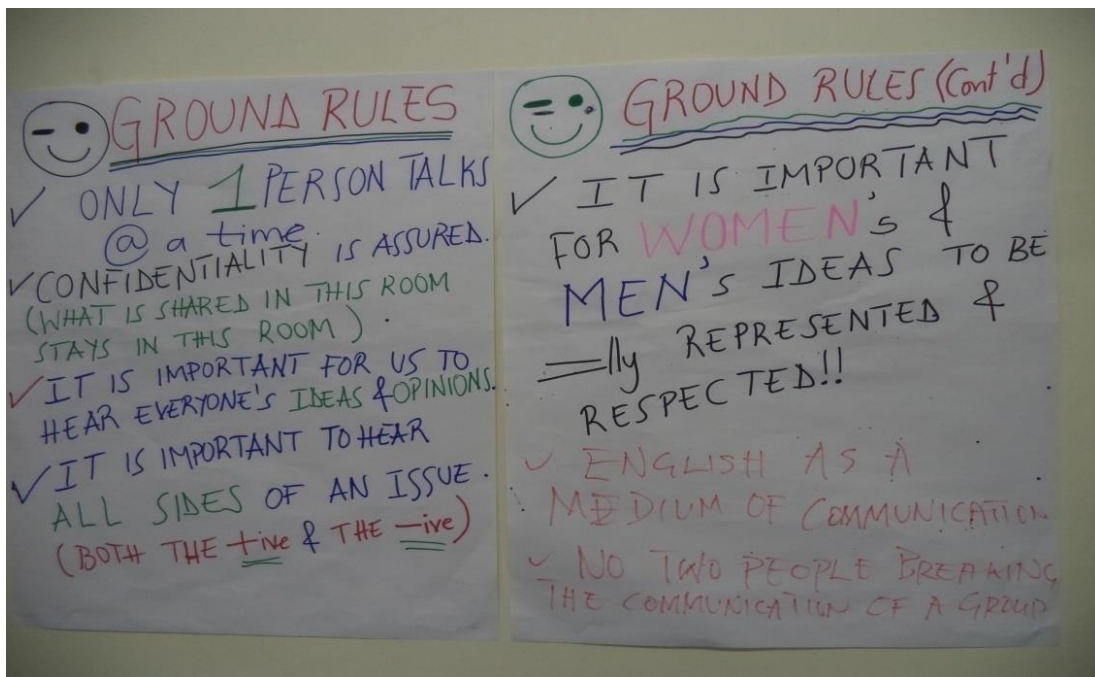 GROUND RULES
✓ ONLY 1 PERSON TALKS
@ a time.
✓ CONFIDENTIALITY IS ASSURED.
(WHAT IS SHARED IN THIS ROOM
STAYS IN THIS ROOM).
✓ IT IS IMPORTANT FOR US TO
HEAR EVERYONE'S IDEAS & OPINIONS.
✓ IT IS IMPORTANT TO HEAR
ALL SIDES OF AN ISSUE.
(BOTH THE +ive & THE -ive)
GROUND RULES (Cont'd)
✓ IT IS IMPORTANT
FOR WOMEN's &
MEN's IDEAS TO BE
=lly REPRESENTED &
RESPECTED!!
✓ ENGLISH AS A
MEDIUM OF COMMUNICATION
✓ NO TWO PEOPLE BREAKING
THE COMMUNICATION OF A GROUP